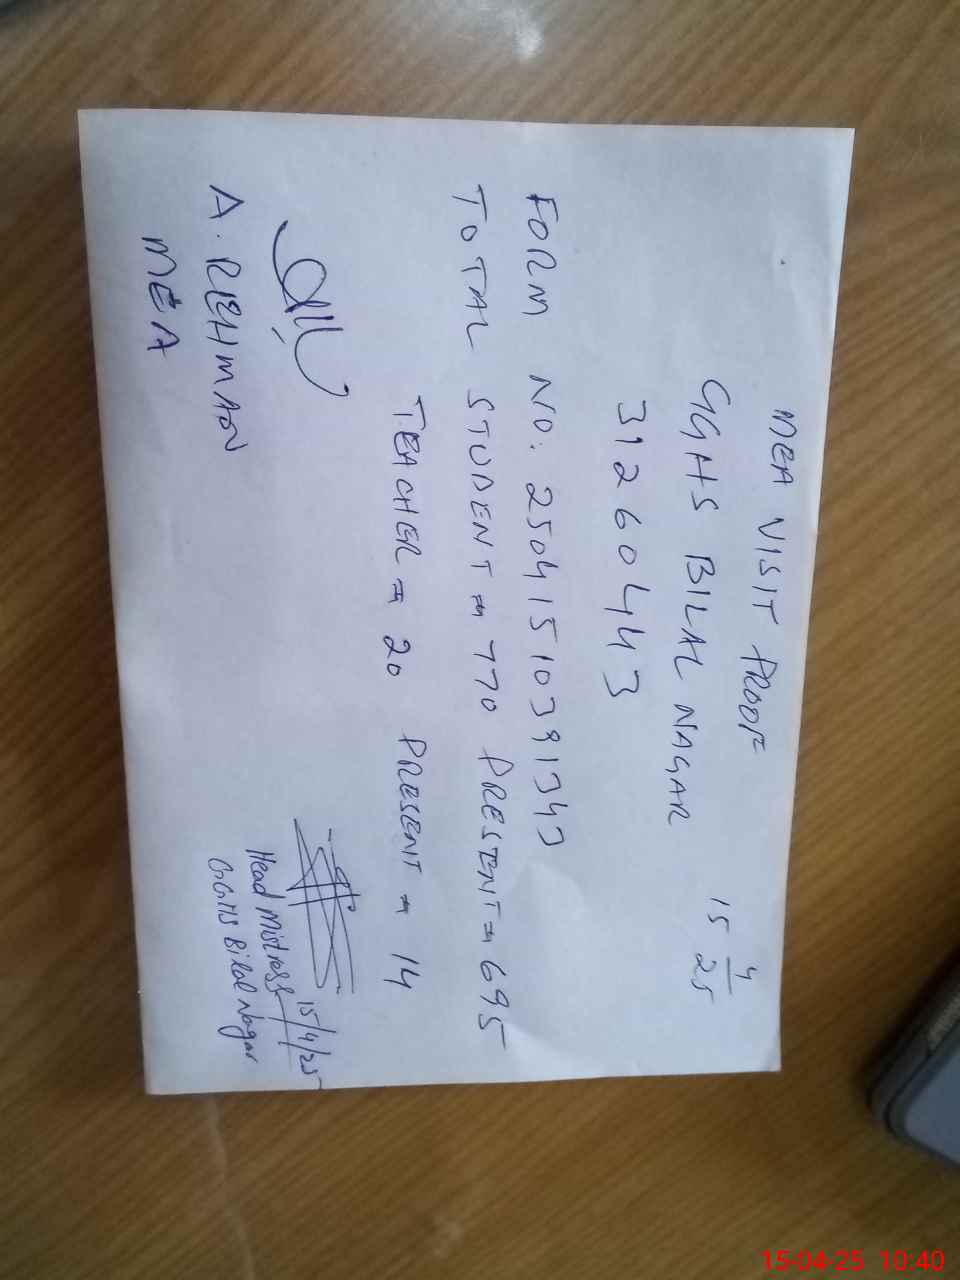 MEA VISIT PROOF
15 4/25
GGHS BILAL NAGAR
31260443
FORM NO. 25041510391343
TOTAL STUDENT = 770 PRESENT = 695
TEACHER = 20 PRESENT = 14
A. REHMAN
MEA
15/4/25
Head Mistress
GGHS Bilal Nagar
15-04-25 10:40